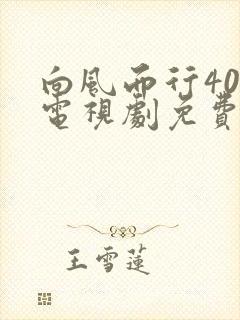 向風而行40
電視劇免費
王雪蓮